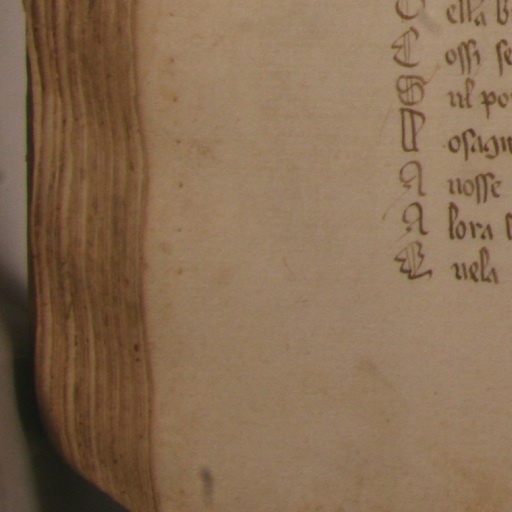 ella
C ossi se
S ul po
P osa
A uosse
A lora
E uela